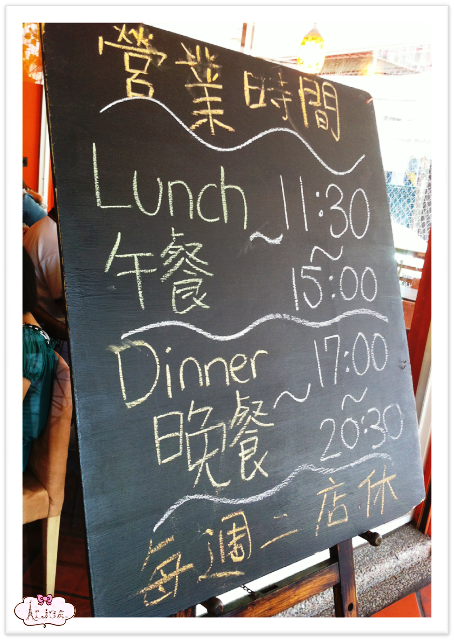 營業時間
Lunch ~ 11:30
午餐 ~ 15:00
Dinner ~ 17:00
晚餐 ~ 20:30
每週二店休